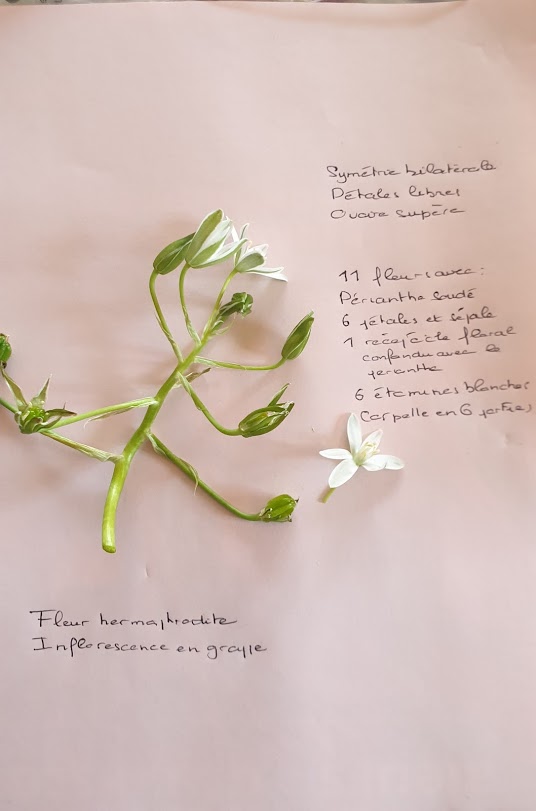 Symétrie bilatérale
Pétales libres
Ovaire supère
11 fleurs avec :
Périanthe soudé
6 pétales et sépale
1 réceptacle floral
confondu avec le
perianthe
6 étamines blanches
Carpelle en 6 parties
Fleur hermaphrodite
Inflorescence en grappe